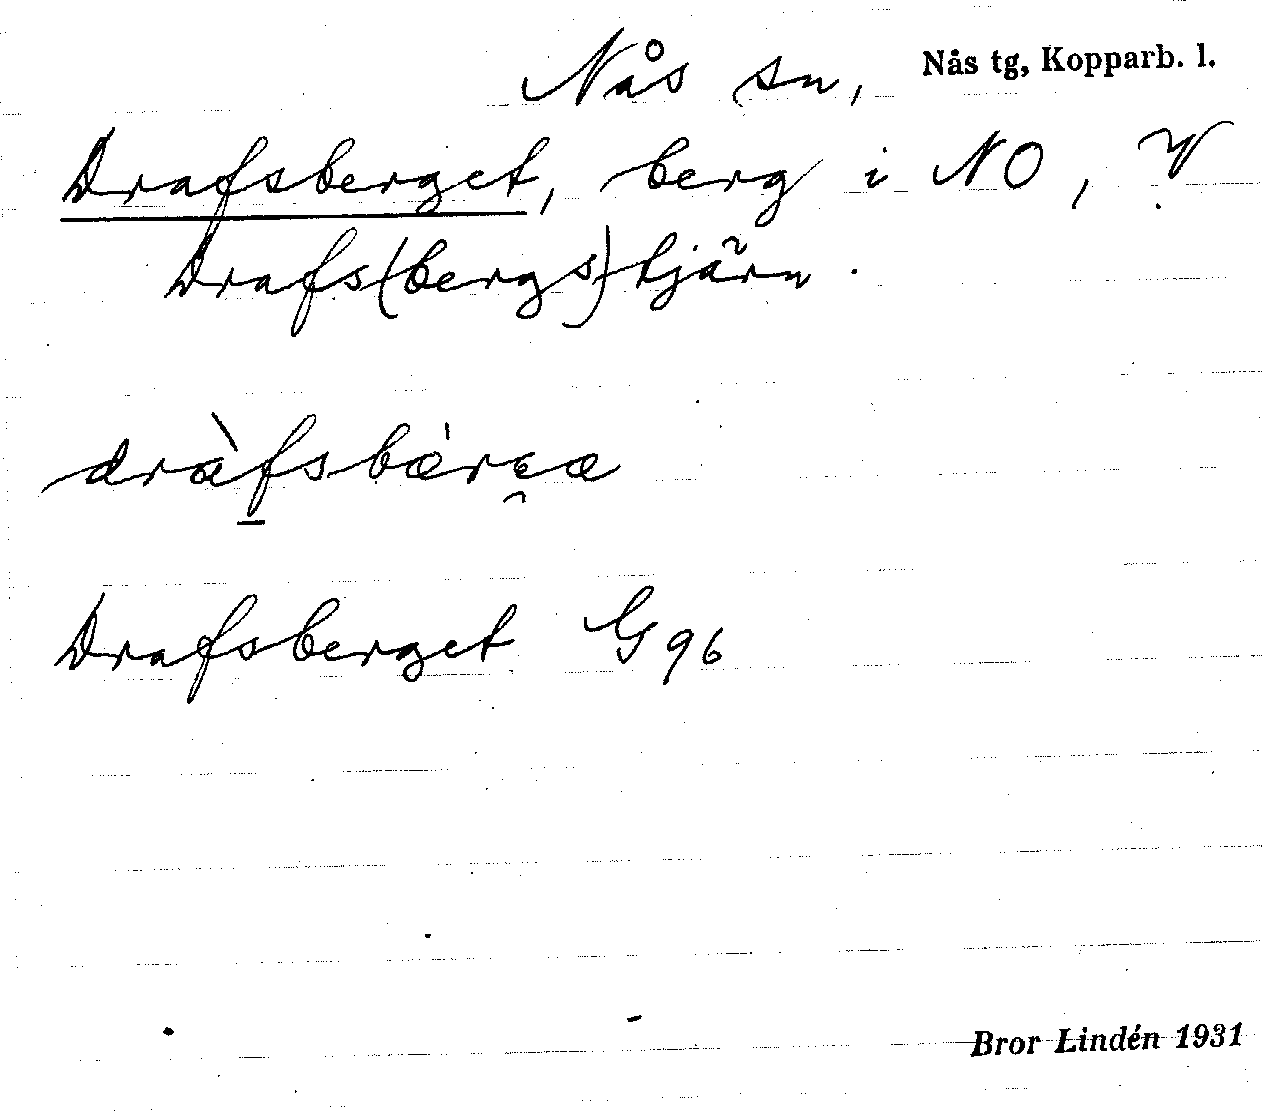 Nås sn, Nås tg, Kopparb. l.
Drafsberget, berg i NO, V
Drafs(bergs)tjärn.
dràfsbærɛæ
Drafsberget G 96
Bror Lindén 1931